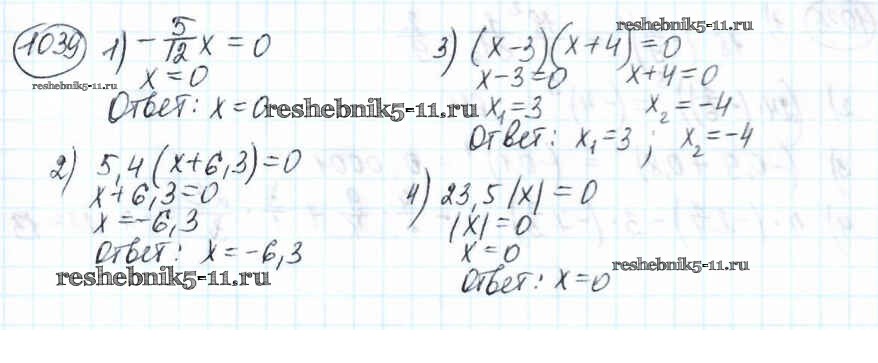 1039
1) - 5/12 x = 0
x = 0
Ответ: x = 0
2) 5,4 (x+6,3)=0
x+6,3=0
x=-6,3
Ответ: x=-6,3
3) (x-3)(x+4)=0
x-3=0 x+4=0
x₁=3 x₂=-4
Ответ: x₁=3; x₂=-4
4) 23,5|x|=0
|x|=0
x=0
Ответ: x=0
reshebnik5-11.ru
reshebnik5-11.ru
reshebnik5-11.ru
reshebnik5-11.ru
reshebnik5-11.ru